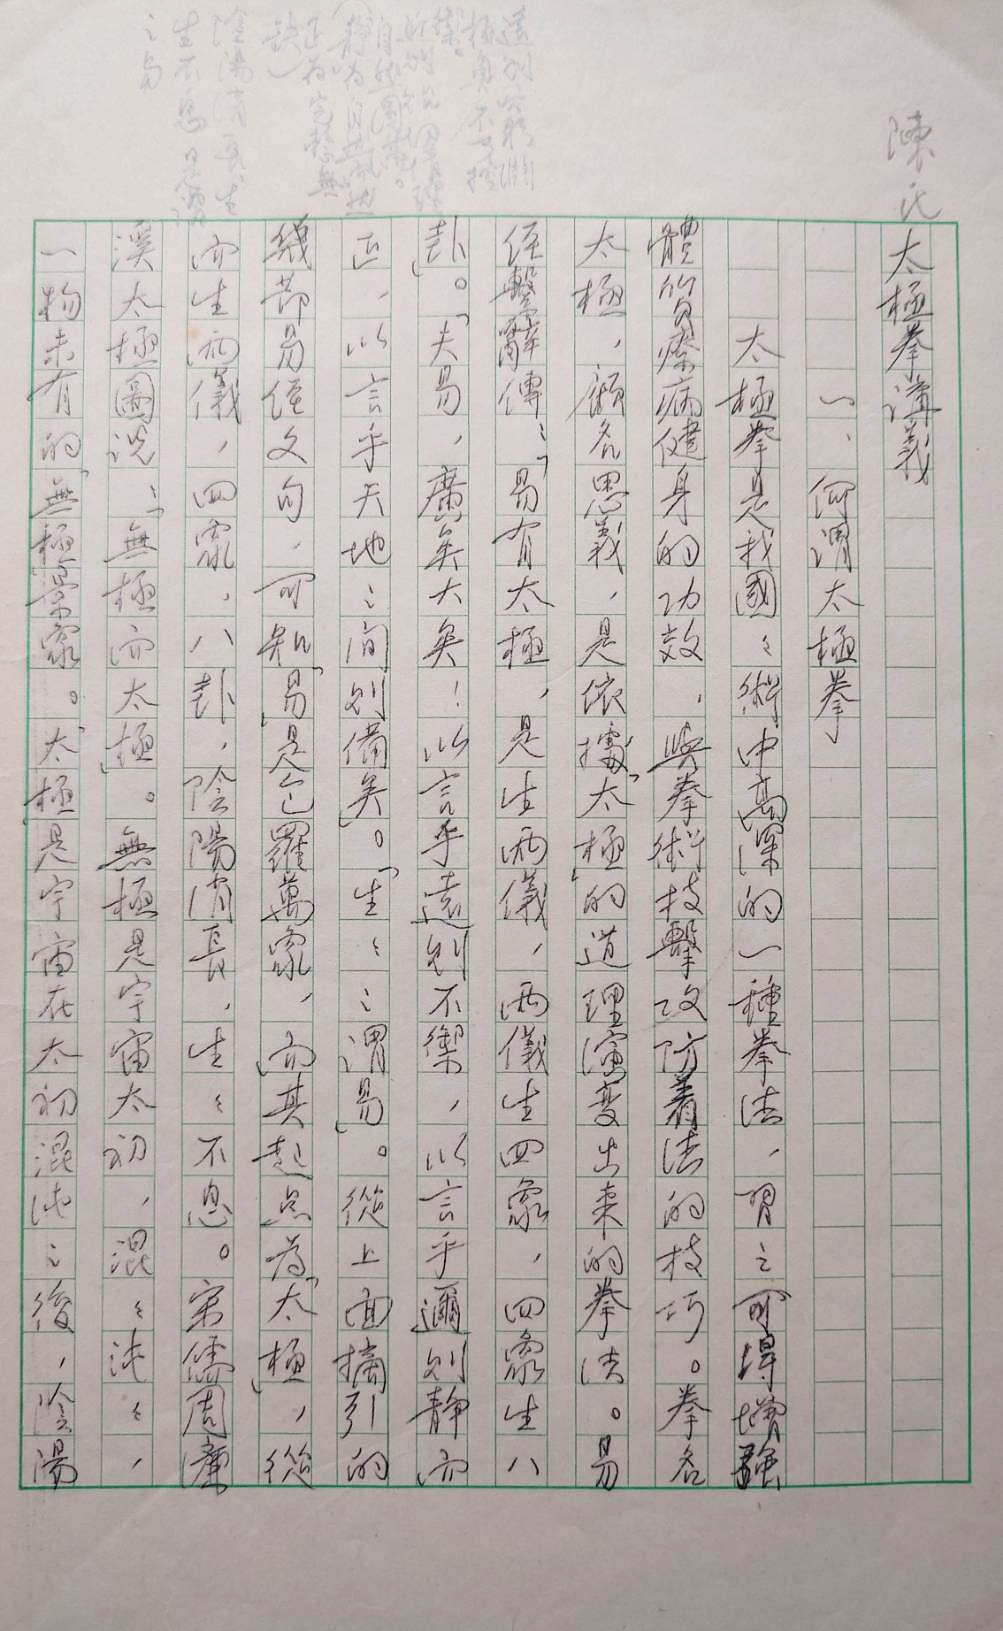 陳氏
太極拳講義
一、何謂太極拳
太極拳是我國々術中高深的一種拳法，習之可得增強
體質療病健身的功效，與拳術技擊攻防着法的技巧。拳名
太極，顧名思義，是依據「太極」的道理演變出来的拳法。易
經繫辭傳：「易有太極，是生兩儀，兩儀生四象，四象生八
卦」。「夫易，廣矣大矣！以言乎遠則不禦，以言乎邇則静而
正，以言乎天地之间則備矣」。「生々之謂易」。從上面摘引的
幾節易經文句，可知「易」是包羅萬象，而其起点為「太極」，從
而生兩儀，四象，八卦，陰陽消長，生々不息。宋儒周濂
溪太極圖説：「無極而太極」。無極是宇宙太初，混々沌々，
一物未有的「無極景象。「太極」是宇宙在太初混沌之後，陰陽